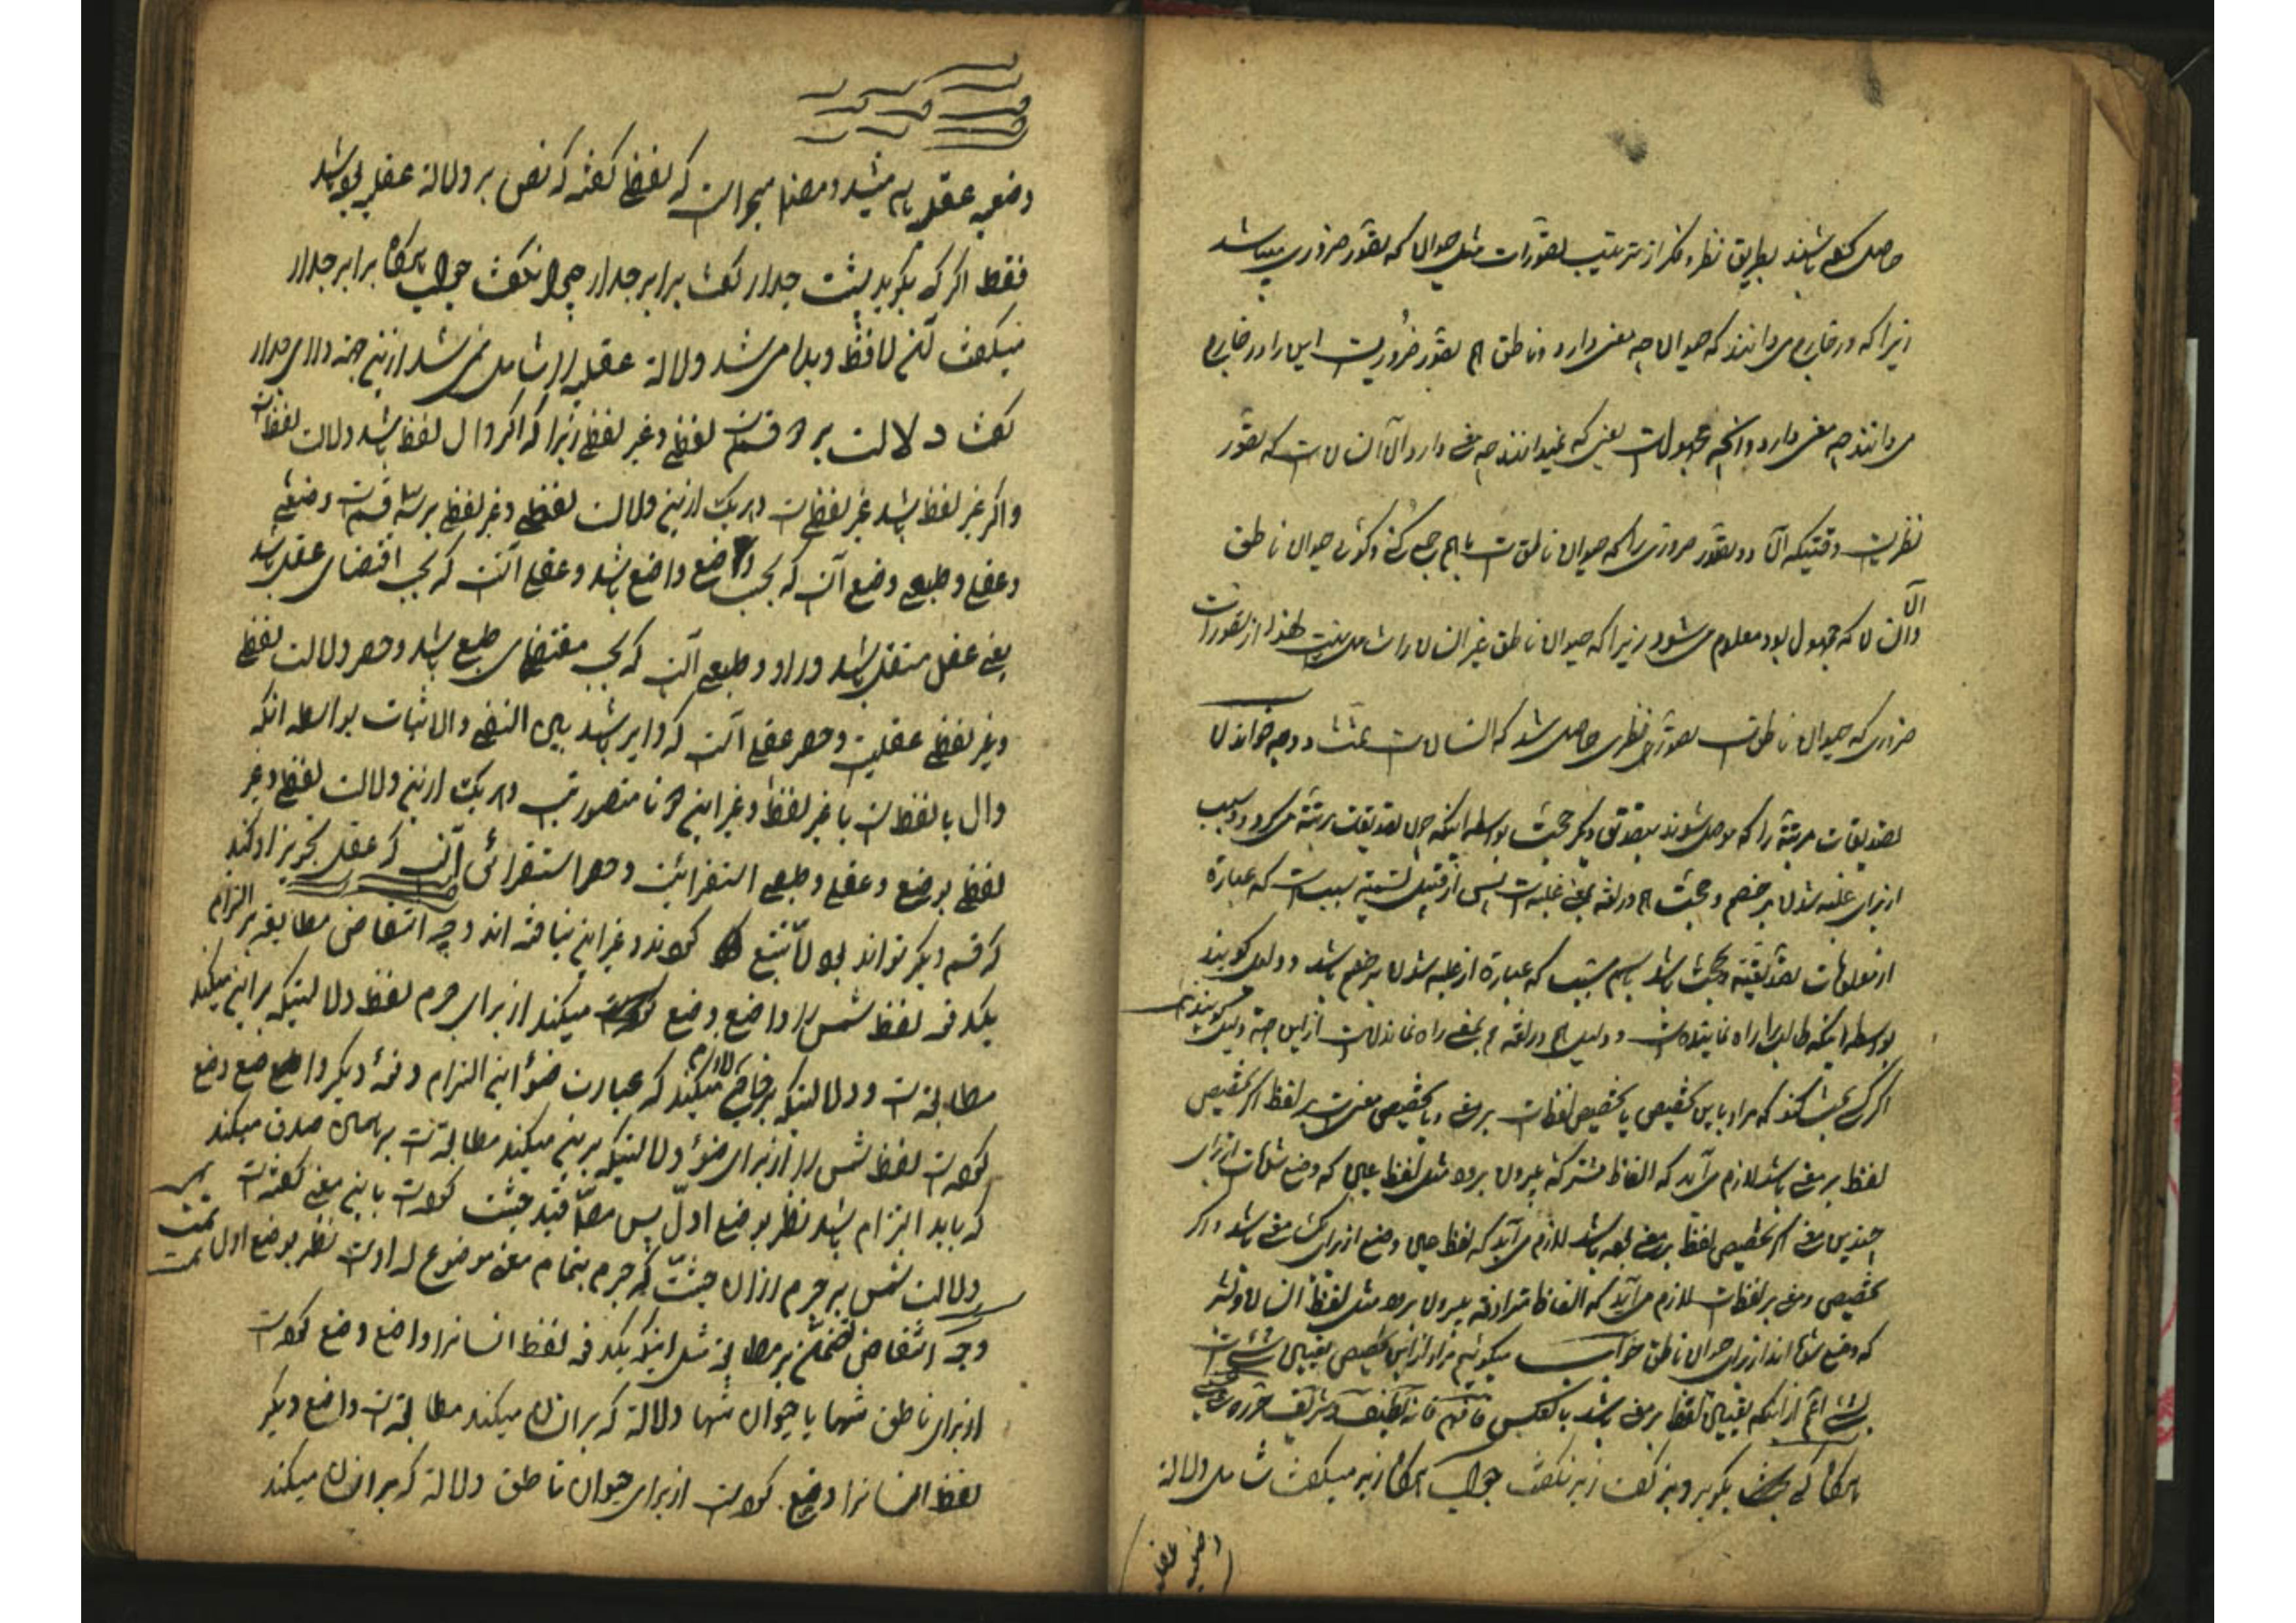 حاصل کرده باشند بطریق نظر و فکر از ترتیب تصورات مثل حیوان که تصور ضروری میباشد
زیرا که در خارج می دانند که حیوان چه معنی دارد و ناطق هم تصور ضروریست این را در خارج
می دانند چه معنی دارد و آنچه مجهولست یعنی که نمیدانند چه معنی دارد الآن انسان است که تصور
نظریست وقتیکه دو تصور ضروری را که حیوان ناطق است با هم جمع کنی و گوئی حیوان ناطق
الآن
انسان که مجهول بود معلوم می شود زیرا که حیوان ناطق غیر انسان را شامل نیست لهذا از تصورات
ضروری که حیوان ناطق است تصور نظری حاصل شد که انسان است تمت و وجه خواندن
تصدیقات مرتبه را که موصل شوند بتصدیق دیگر حجت بواسطه اینکه چون تصدیقات مرتبه می کردد سبب
از برای غلبه شدن بر خصم و حجت هم در لغة بمعنی غلبه است پس از قبیل تسمیه سبب است که عبارة
از معلومات تصدیقیه و حجت باشد باسم سبب که عبارة از غلبه شدن بر خصم باشد و دلیل گویند
بواسطه اینکه طالب را راه نماینده است و دلیل هم در لغه بمعنی راه نماندن است از این جهة دلیل گویند
اگر کسی بحث کند که مراد باین تخصیص یا تخصیص لفظ است بر معنی و یا تخصیص معنی است بر لفظ اگر تخصیص
لفظ بر معنی باشد لازم می آید که الفاظ مشترکة بیرون برود مثل لفظ عین که وضع شده است از برای
چندین معنی اگر تخصیص لفظ بر معنی بوده باشد لازم می آید که لفظ عین وضع از برای یک معنی باشد و اگر
تخصیص معنی بر لفظ است لازم می آید که الفاظ مترادفه بیرون برود مثل لفظ انسان و بشر
که وضع شده اند از برای حیوان ناطق جواب میگوئیم مراد از این تخصیص تعیین شئ است
بشئ اعم از اینکه تعیین لفظ بر معنی باشد یا بالعکس فافهم فانه لطیف و شریف
هرگاه کسی بگوید دیز گفت زیر نگفت جواب هرگاه زیر میگفت شامل دلالة
وضعیه عقلیه
وضعیه عقلیه هم میشد و مصنف میخواست که لفظی گفته که نص بر دلالة عقلیه بوده باشد
فقط اگر که بگوید پشت جدار گفت برابر جدار چرا نگفت جواب هرگاه برابر جدار
میگفت لافظ دیده می شد و دلالة عقلیه را شامل نمی شد از این جهة ورای جدار
گفت دلالت بر دو قسم است لفظی و غیر لفظی زیرا که اگر دال لفظ باشد دلالت لفظی است
و اگر غیر لفظ باشد غیر لفظی است و هر یک از این دلالت لفظی و غیر لفظی بر سه قسم است وضعی
و عقلی و طبعی وضعی آنست که بحسب وضع واضع باشد و عقلی آنست که بحسب اقتضای عقل باشد
یعنی عقل مستقل باشد در او و طبعی آنست که بحسب مقتضای طبع باشد و حصر دلالت لفظی
و غیر لفظی عقلیست و حصر عقلی آنست که دایر باشد بین النفی و الاثبات بواسطه آنکه
دال یا لفظ است یا غیر لفظ و غیر این دو تا متصور نیست و هر یک از این دلالت لفظی و غیر
لفظی بوضع و عقلی و طبعی استقرائیست و حصر استقرائی آنست که عقل تجویز او کند
که قسم دیگر تواند بود تتبع کردند و غیر این نیافته اند وجه انتقاض مطابقه بر التزام
یکدفعه لفظ شمس را واضع وضع میکند از برای جرم لفظ دلالتیکه بر این میکند
مطابقه است و دلالتیکه بر خارج لازم میکند که عبارت ضوء این التزام و دفعه دیگر واضع وضع
کرده است لفظ شمس را از برای ضوء دلالتیکه بر این میکند مطابقه است بر همان صدق میکند
که باید التزام باشد نظر بوضع اول پس مصنف قید حیثیت کرده است باین معنی گفته است
دلالت شمس بر جرم از آن حیثیت که جرم تمام معنی موضوع له اوست نظر بوضع اول تمت
وجه انتقاض تضمن بر مطابقه مثل اینکه یکدفعه لفظ انسانرا واضع وضع کرده است
از برای ناطق تنها یا حیوان تنها دلالة که بر انسان میکند مطابقه است واضع دیگر
لفظ انسانرا وضع کرده است از برای حیوان ناطق دلالة که بر انسان میکند